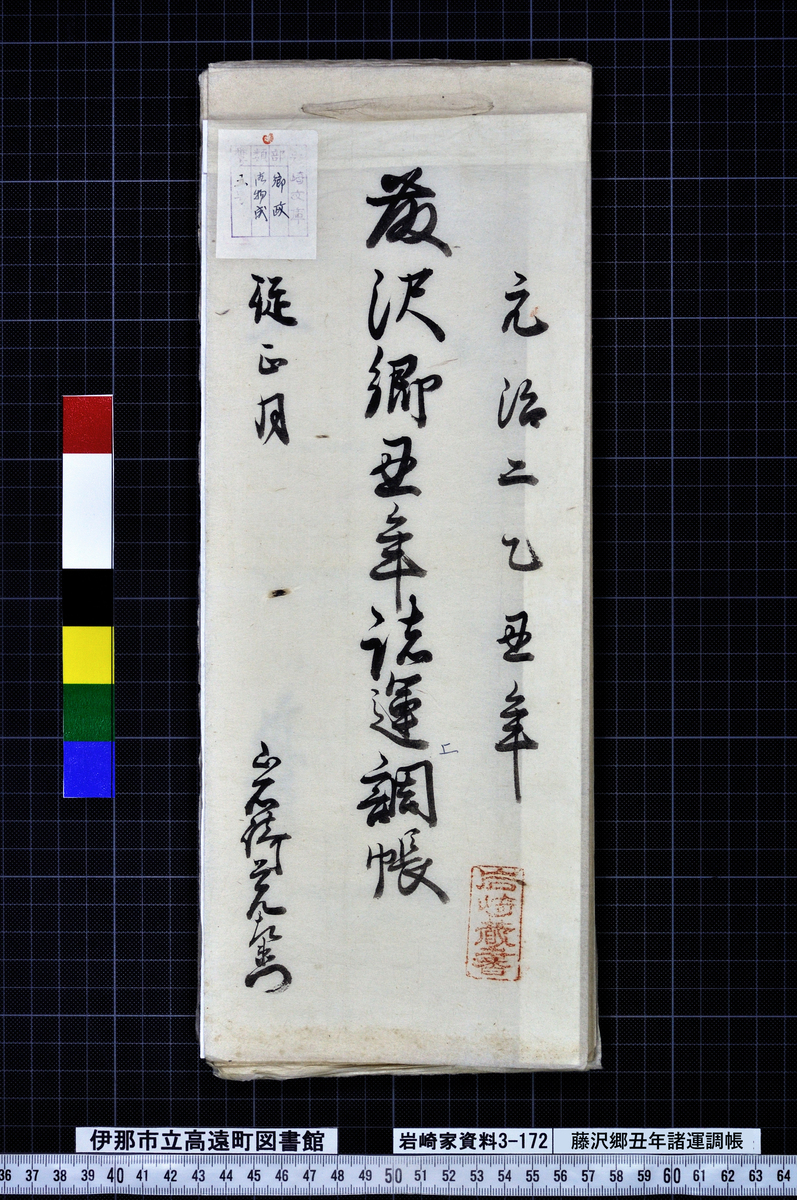 元治二乙丑年
藤沢郷丑年諸運調帳
上
従正月
岩崎
岩崎蔵書
郷政
伊那市立高遠町図書館
岩崎家資料3-172
藤沢郷丑年諸運調帳
36 37 38 39 40 41 42 43 44 45 46 47 48 49 50 51 52 53 54 55 56 57 58 59 60 61 62 63 64